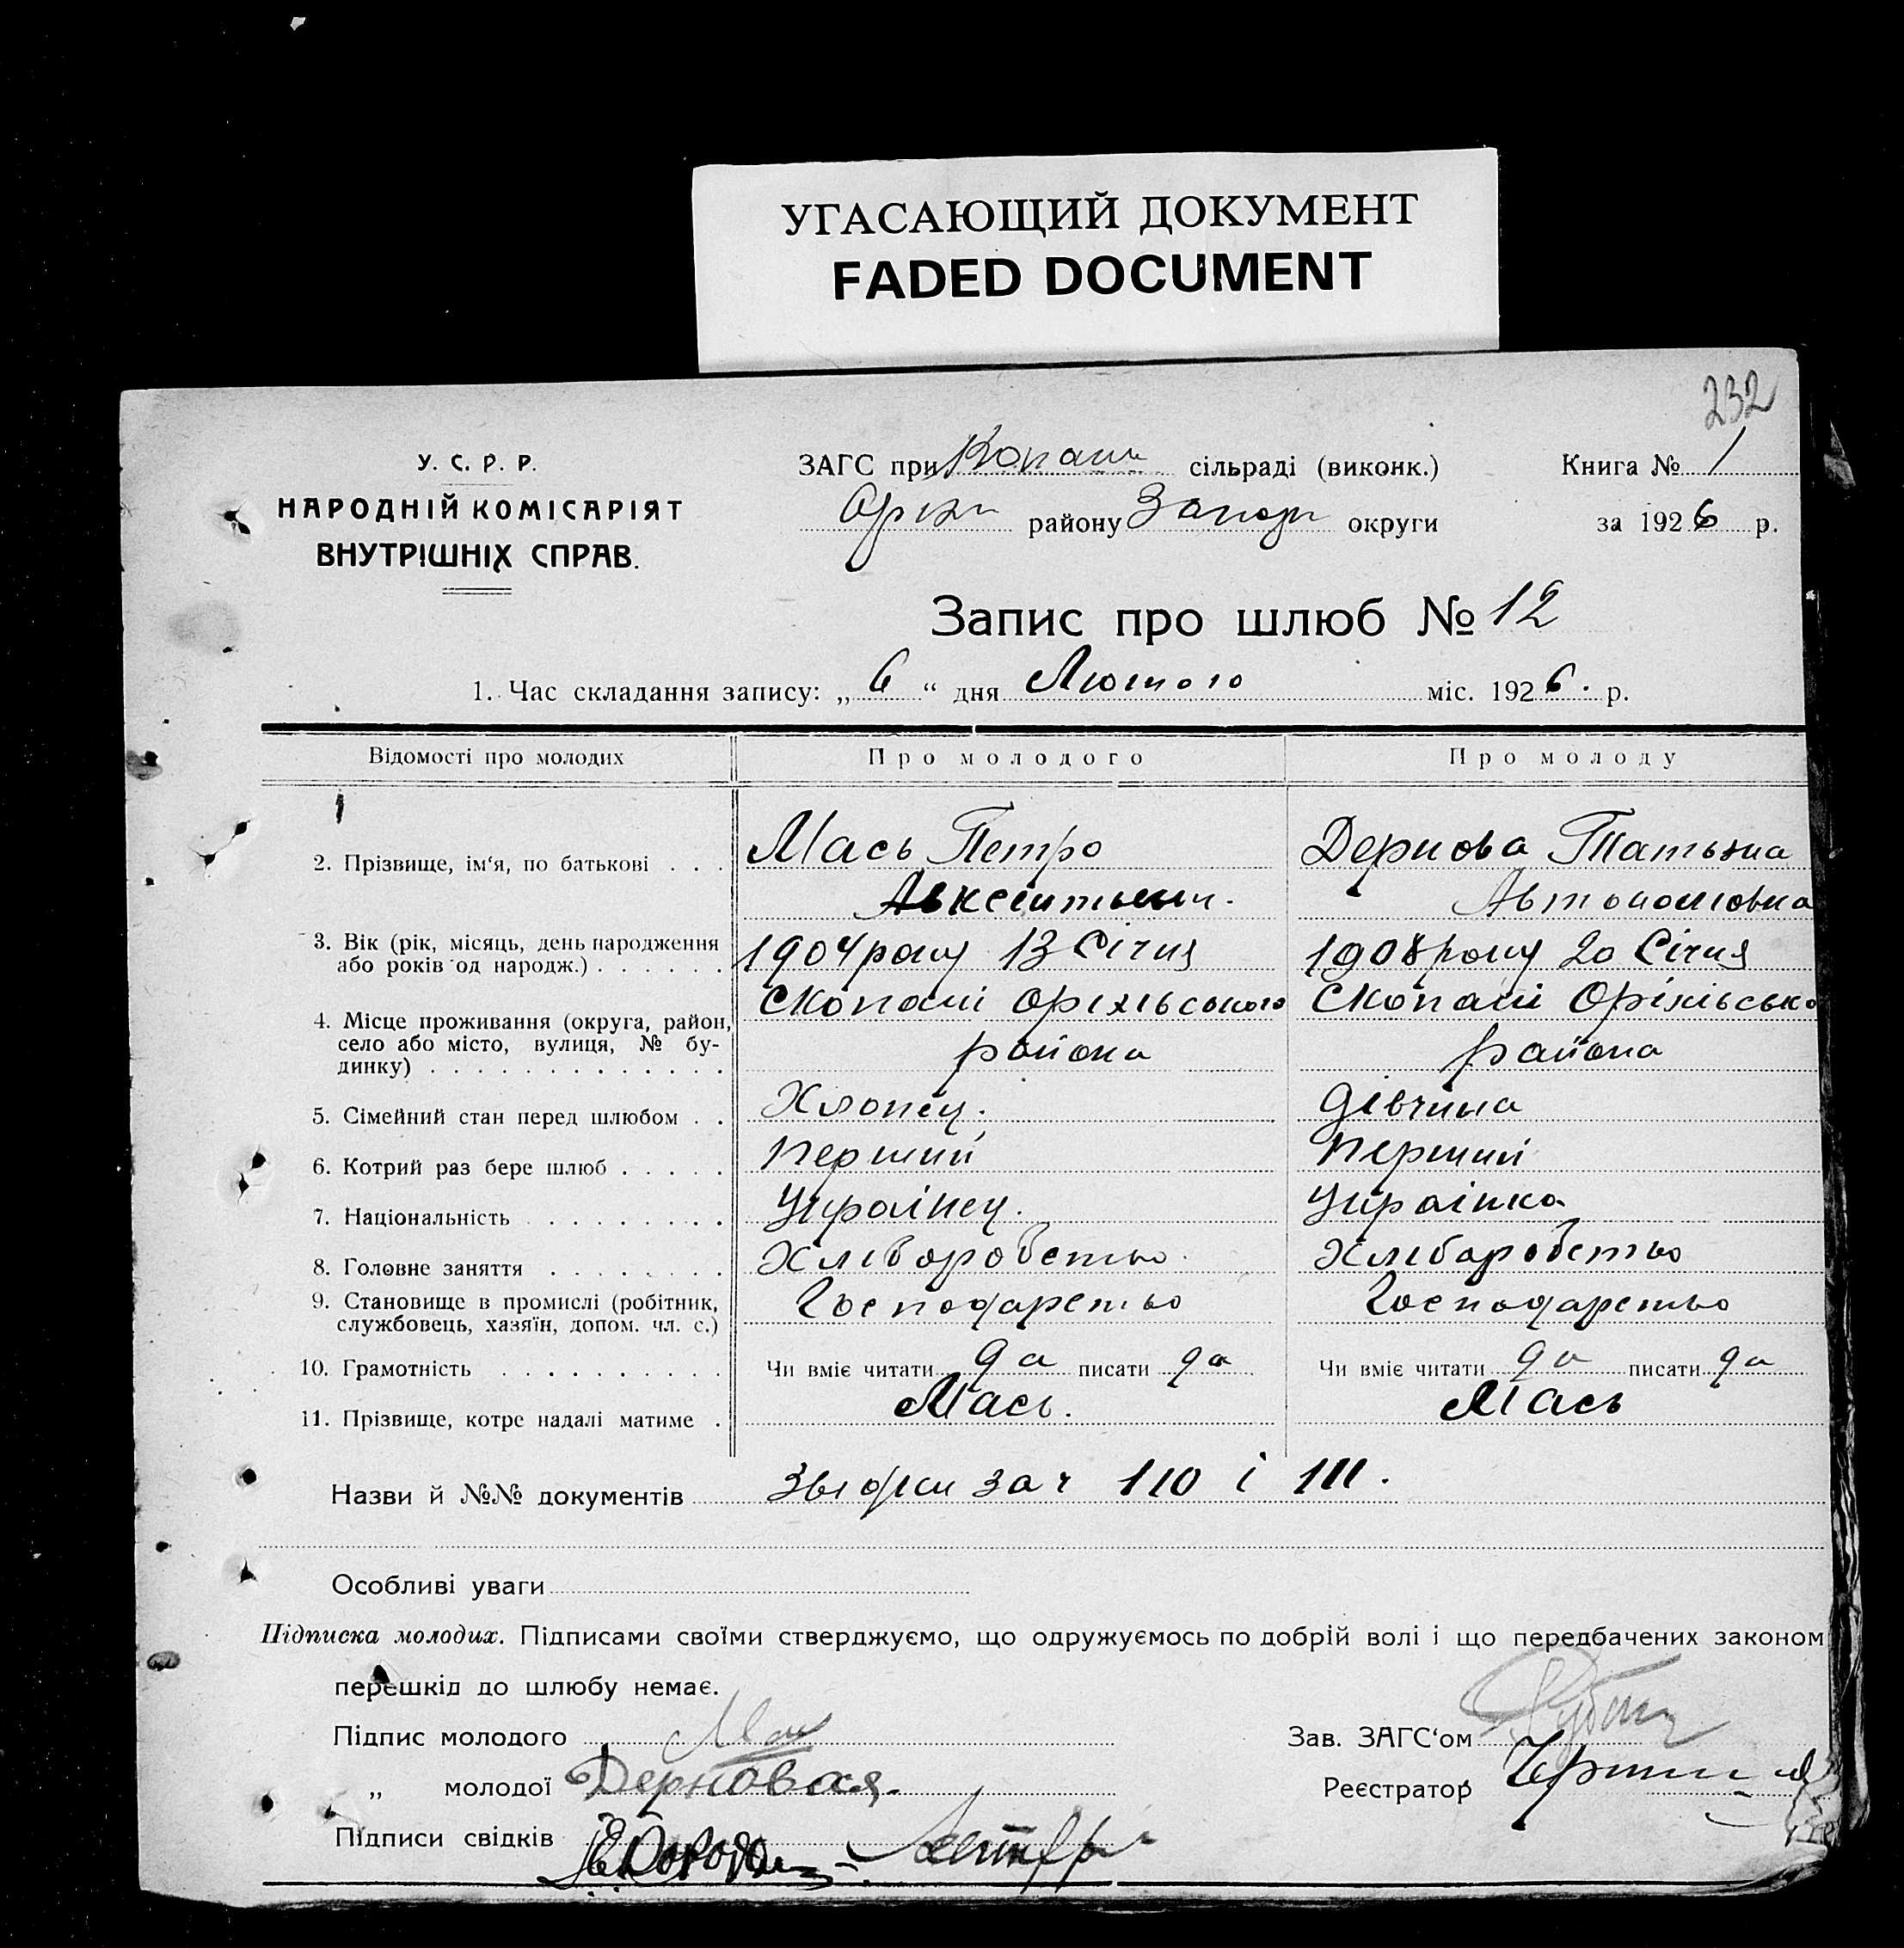 УГАСАЮЩИЙ ДОКУМЕНТ
FADED DOCUMENT
232
У. С. Р. Р.
НАРОДНІЙ КОМІСАРІЯТ
ВНУТРІШНІХ СПРАВ.
ЗАГС при Копани сільраді (виконк.)
Оріх району Запор округи
Книга № 1
за 1926 р.
Запис про шлюб № 12
1. Час складання запису: „ 6 “ дня Лютого міс. 1926. р.
Відомості про молодих Про молодого Про молоду
2. Прізвище, ім‘я, по батькові . . . Мась Петро Дернова Татьяна
Автономовна
3. Вік (рік, місяць, день народження 1904 року 13 Січня 1908 року 20 Січня
або років од народж.) . . . . . .
4. Місце проживання (округа, район, С Копані Оріхівського С Копані Оріхівсько
село або місто, вулиця, № бу- района района
динку) . . . . . . . . . . . . .
5. Сімейний стан перед шлюбом . . Хлопец. дівчина
6. Котрий раз бере шлюб . . . . . Перший Перший
7. Національність . . . . . . . . . Украінец. Украінка
8. Головне заняття . . . . . . . . Хліборобство. Хліборобство
9. Становище в промислі (робітник, Господарство Господарство
службовець, хазяїн, допом. чл. с.)
10. Грамотність . . . . . . . . . . Чи вміє читати да писати да Чи вміє читати да писати да
11. Прізвище, котре надалі матиме . Мась. Мась
Назви й №№ документів 110 і 111.
Особливі уваги
Підписка молодих. Підписами своїми стверджуємо, що одружуємось по добрій волі і що передбачених законом
перешкід до шлюбу немає.
Підпис молодого
Зав. ЗАГС‘ом
„ молодої Дерновая.
Реєстратор
Підписи свідків